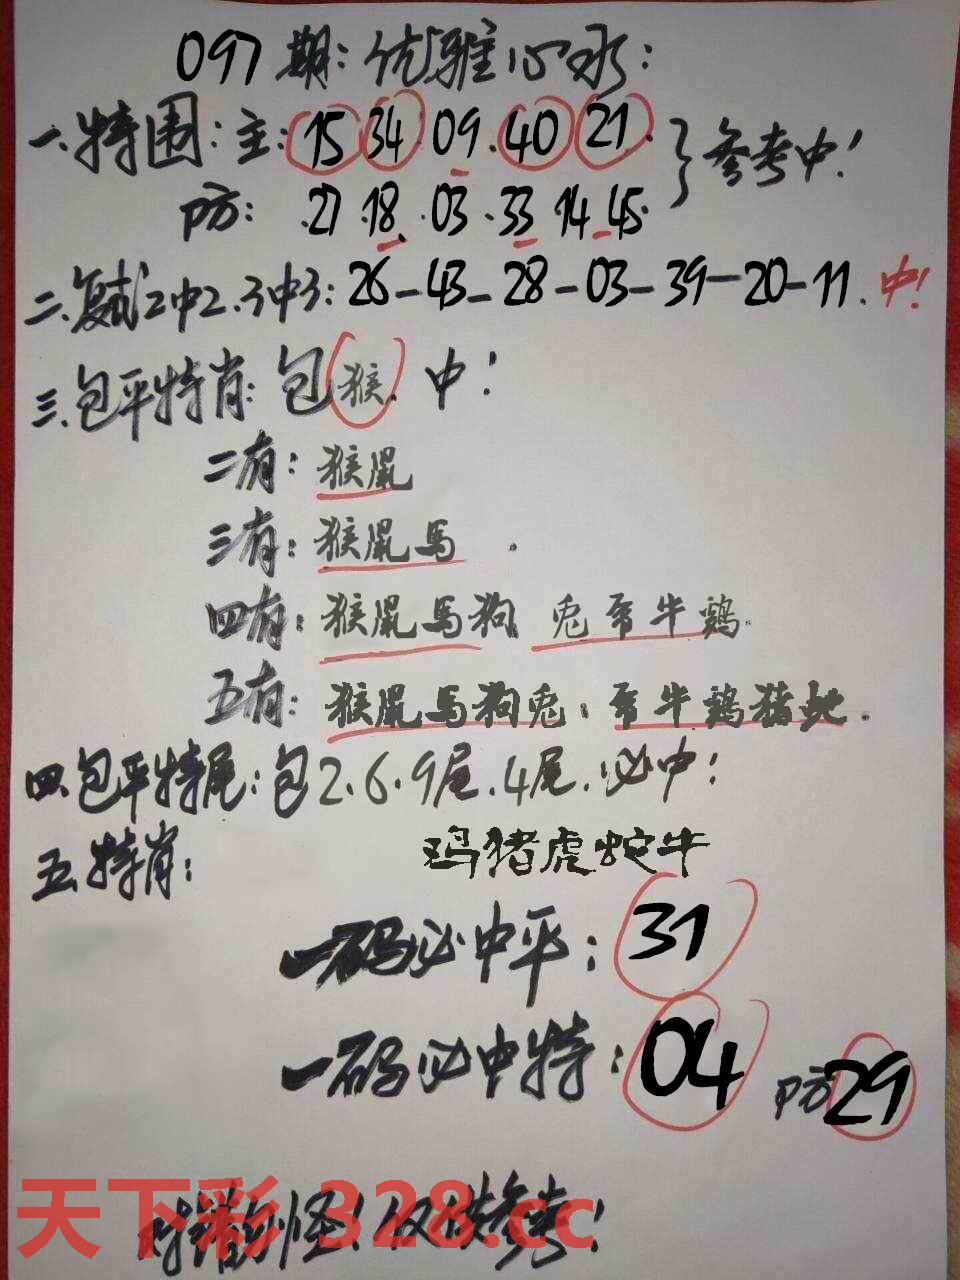 097期:优雅心水:
一.特围:主:15 34 09.40 21. }参考中!
防: .27.18.03.33 14 45.
二.复式2中2.3中3:26-43-28-03-39-20-11.中!
三.包平特肖:包猴.中!
二有:猴鼠
三有:猴鼠馬.
四有:猴鼠馬狗 兎帍牛鷄.
五有:猴鼠馬狗兎:帍牛鷄猪虵.
四.包平特尾:包2.6.9尾.4尾.必中!
五.特肖: 鸡猪虎蛇牛
一码必中平:31
一码必中特:04 防29
对错勿怪!仅供参考!
天下彩 328.cc